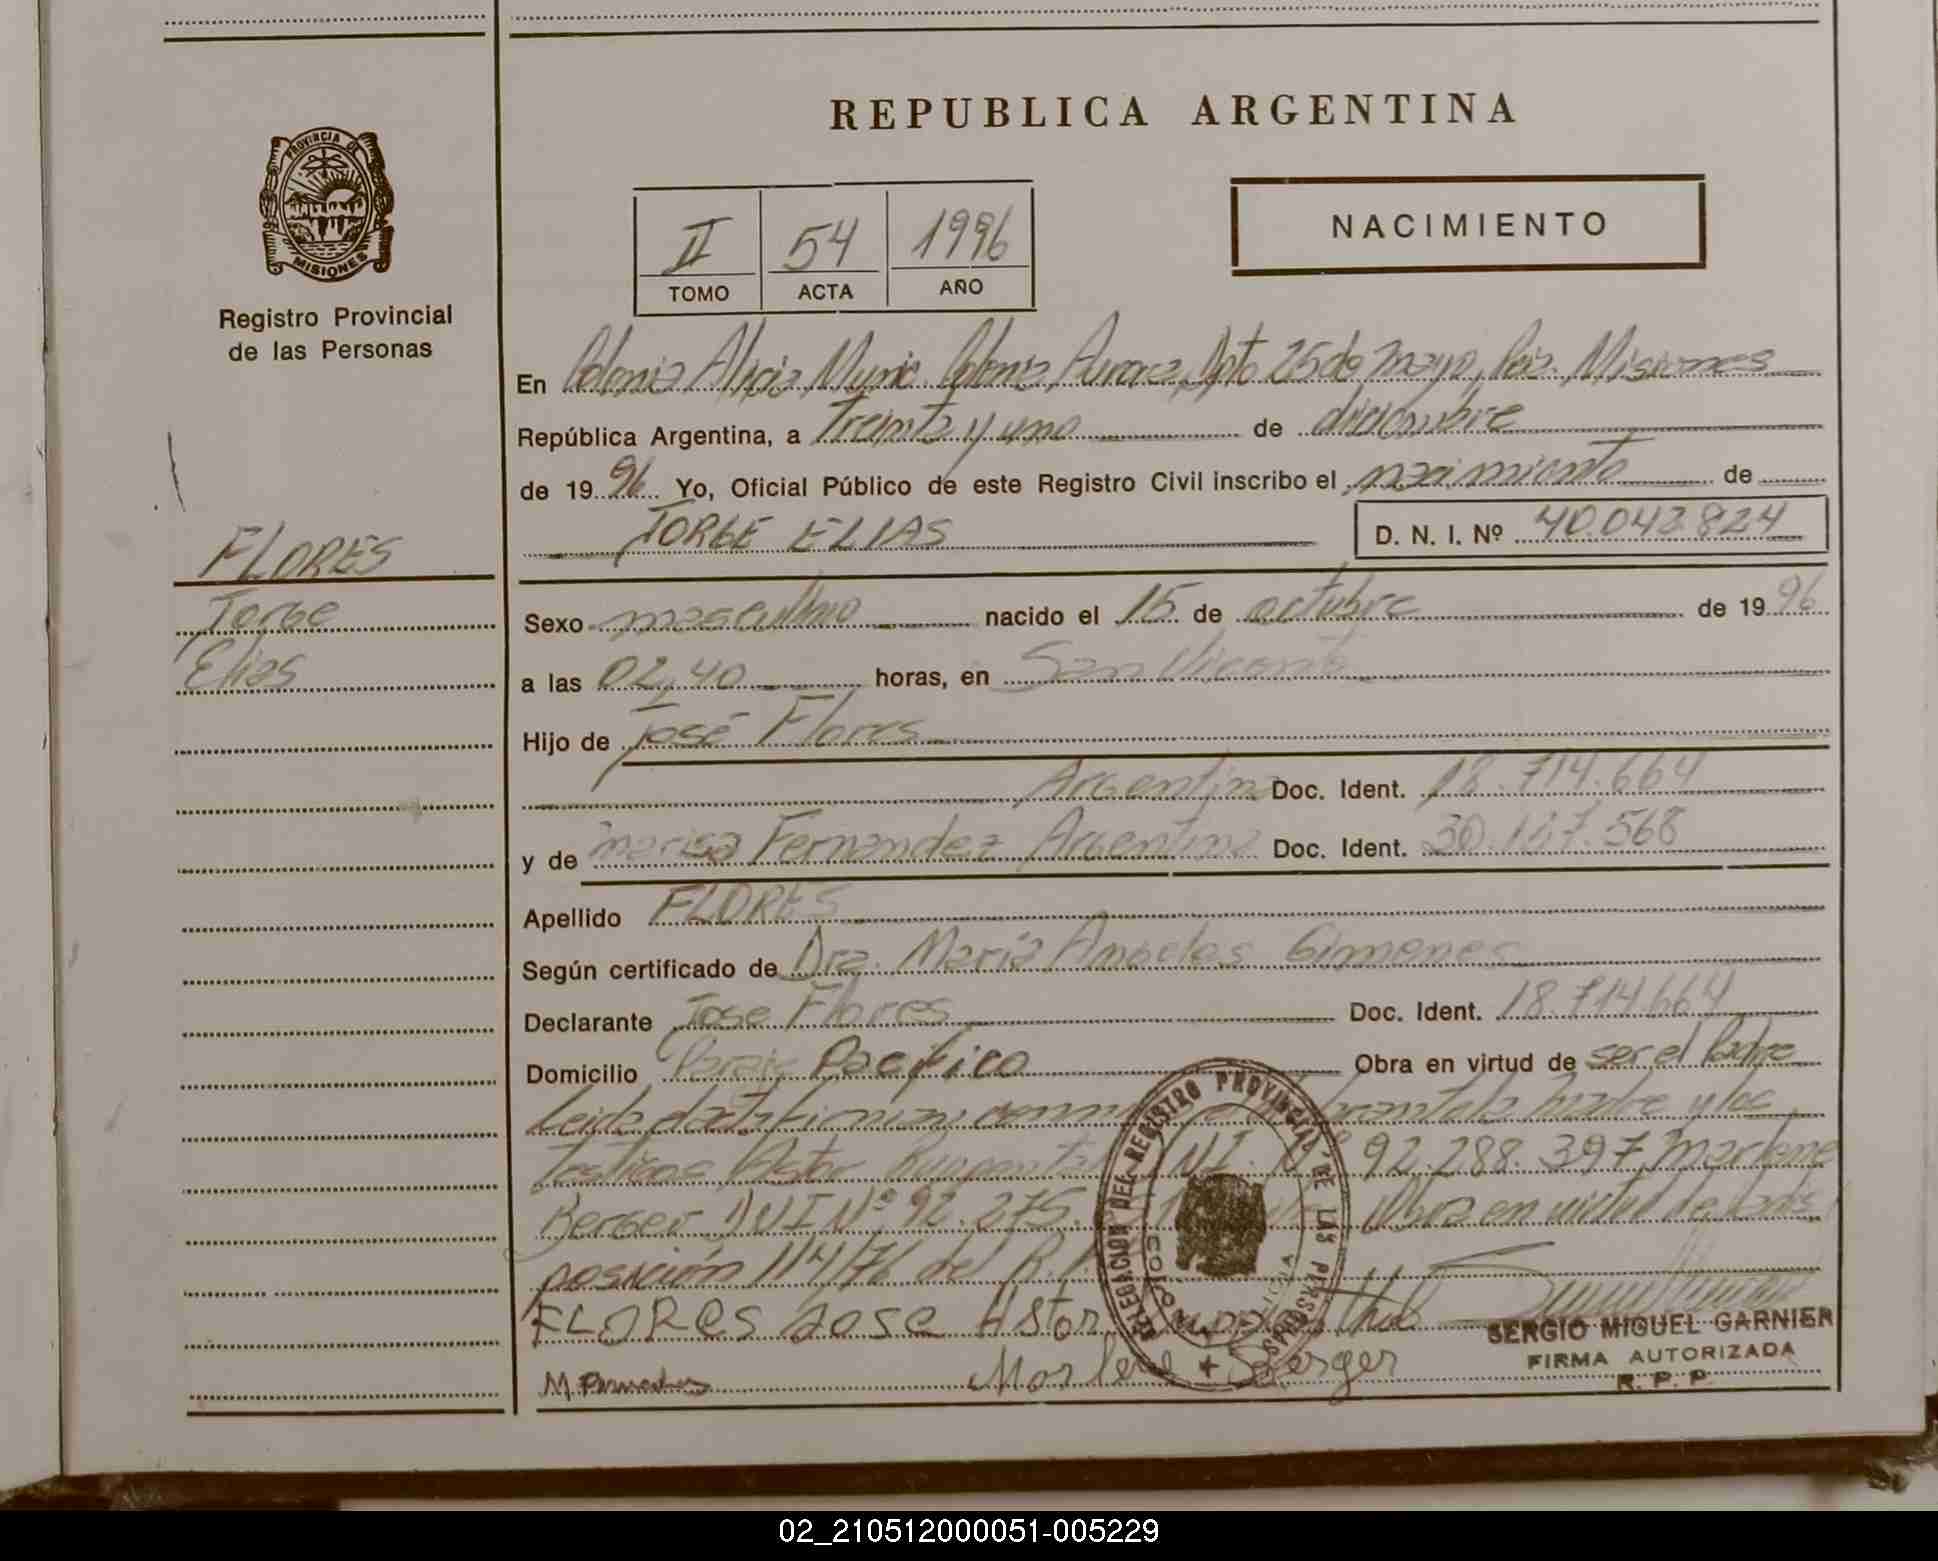 REPUBLICA ARGENTINA
PROVINCIA DE MISIONES
Registro Provincial
de las Personas
II 54 1996
TOMO ACTA AÑO
NACIMIENTO
En Colonia Alicia, Munic. Colonia Aurora, Dpto 25 de mayo, Pcia. Misiones
República Argentina, a treinta y uno de diciembre
de 1996 Yo, Oficial Público de este Registro Civil inscribo el nacimiento de
JORGE ELIAS D. N. I. Nº 40.042.824
FLORES
Jorge
Elias
Sexo masculino nacido el 15 de octubre de 1996
a las 02,40 horas, en San Vicente
Hijo de José Flores
Argentina Doc. Ident. 18.714.664
y de marisa Fernandez Argentina Doc. Ident. 30.187.568
Apellido FLORES
Según certificado de Dra. María Angeles Gimenes
Declarante Jose Flores Doc. Ident. 18.714.664
Domicilio Paraje Pacifico Obra en virtud de ser el Padre
Leida el acta firman la madre y los
testigos Astor DNI. Nº 92.288.397, Marlene
Berger DNI Nº 92.275. Obra en virtud de la dis
posición 114/76 del R.P.
FLORES JOSE Astor
SERGIO MIGUEL GARNIER
FIRMA AUTORIZADA
R. P. P.
Marlene Berger
DELEGACION DEL REGISTRO PROVINCIAL DE LAS PERSONAS
02_210512000051-005229